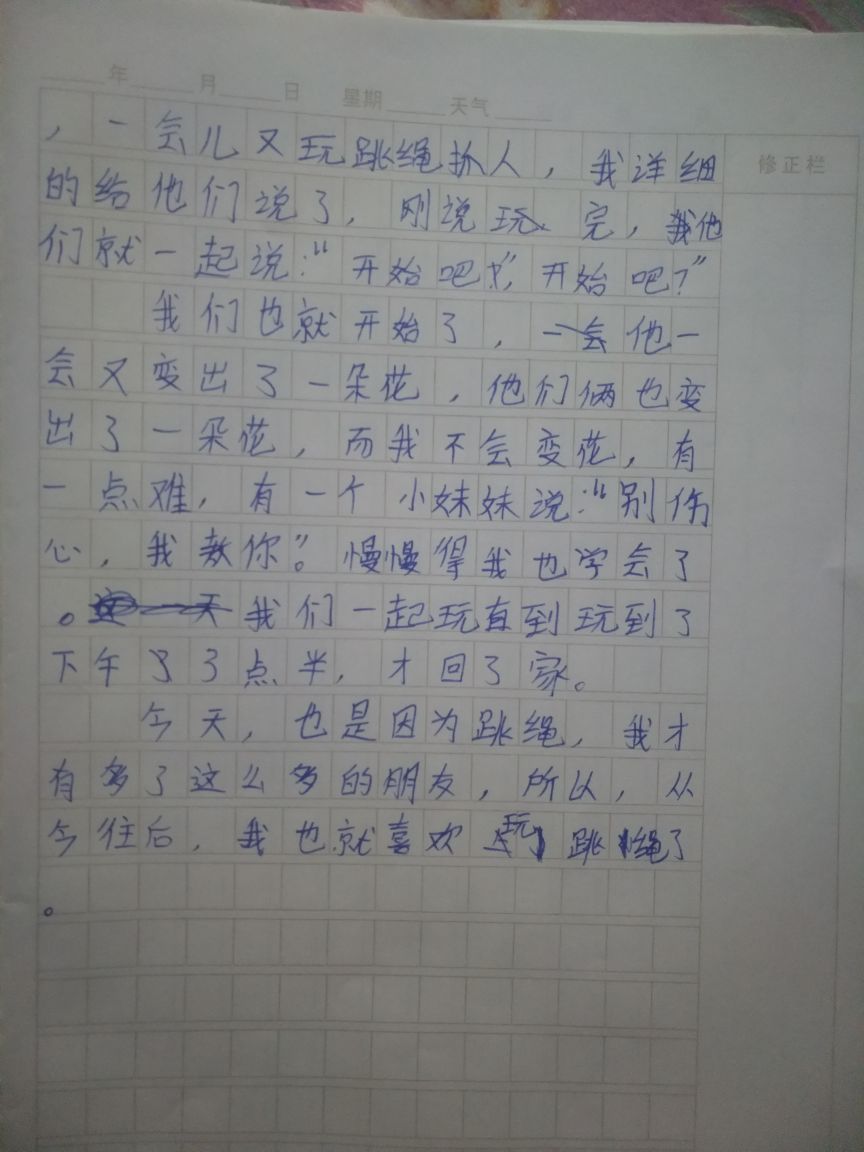 年 月 日 星期 天气
修正栏
，一会儿又玩跳绳抓人，我详细
的给他们说了，刚说玩、完，我他
们就一起说：“开始吧？”，开始吧？”
我们也就开始了，一会他一
会又变出了一朵花，他们俩也变
出了一朵花，而我不会变花，有
一点难，有一个小妹妹说：“别伤
心，我教你”。慢慢得我也学会了
。我们一起玩直到玩到了
下午3点半，才回了家。
今天，也是因为跳绳，我才
有多了这么多的朋友，所以，从
今往后，我也就喜欢玩跳绳了
。